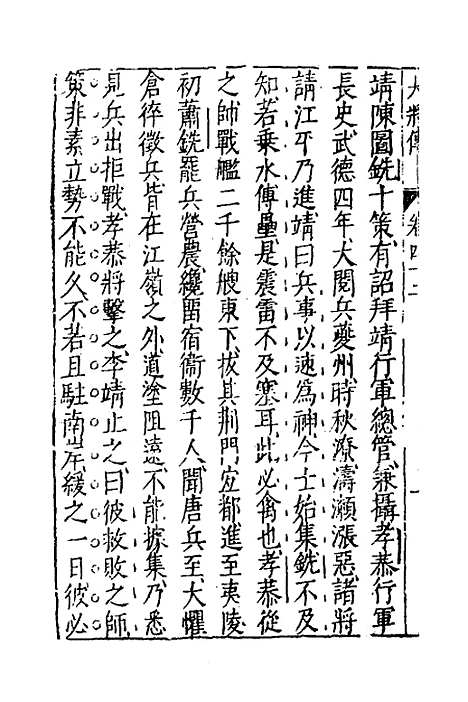 大將傳　卷四十二　一
靖陳圖銑十策有詔拜靖行軍總管兼攝孝恭行軍
長史武德四年大閱兵夔州時秋潦濤瀬漲惡諸將
請江平乃進靖曰兵事以速爲神今士始集銑不及
知若乗水傅壘是震雷不及塞耳此必禽也孝恭從
之帥戰艦二千餘艘東下拔其荆門宜都進至夷陵
初蕭銑罷兵營農纔畱宿衛數千人聞唐兵至大懼
倉猝徵兵皆在江嶺之外道塗阻遠不能據集乃悉
見兵出拒戰孝恭將擊之李靖止之曰彼救敗之師
策非素立勢不能久不若且駐南岸緩之一日彼必